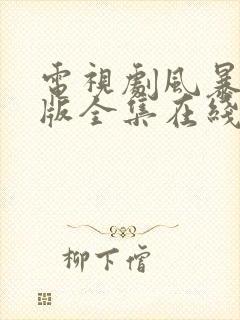 電視劇風暴
版全集在綫
柳下僧